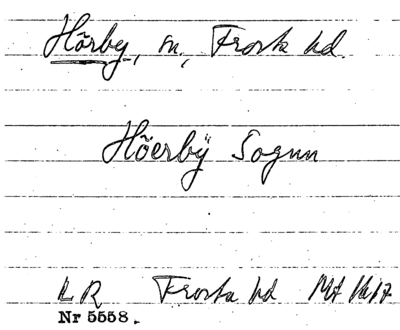 Hörby, sn, Frosta hd.
Höerbÿ Sognn
LR Frosta hd
Nr 5558.